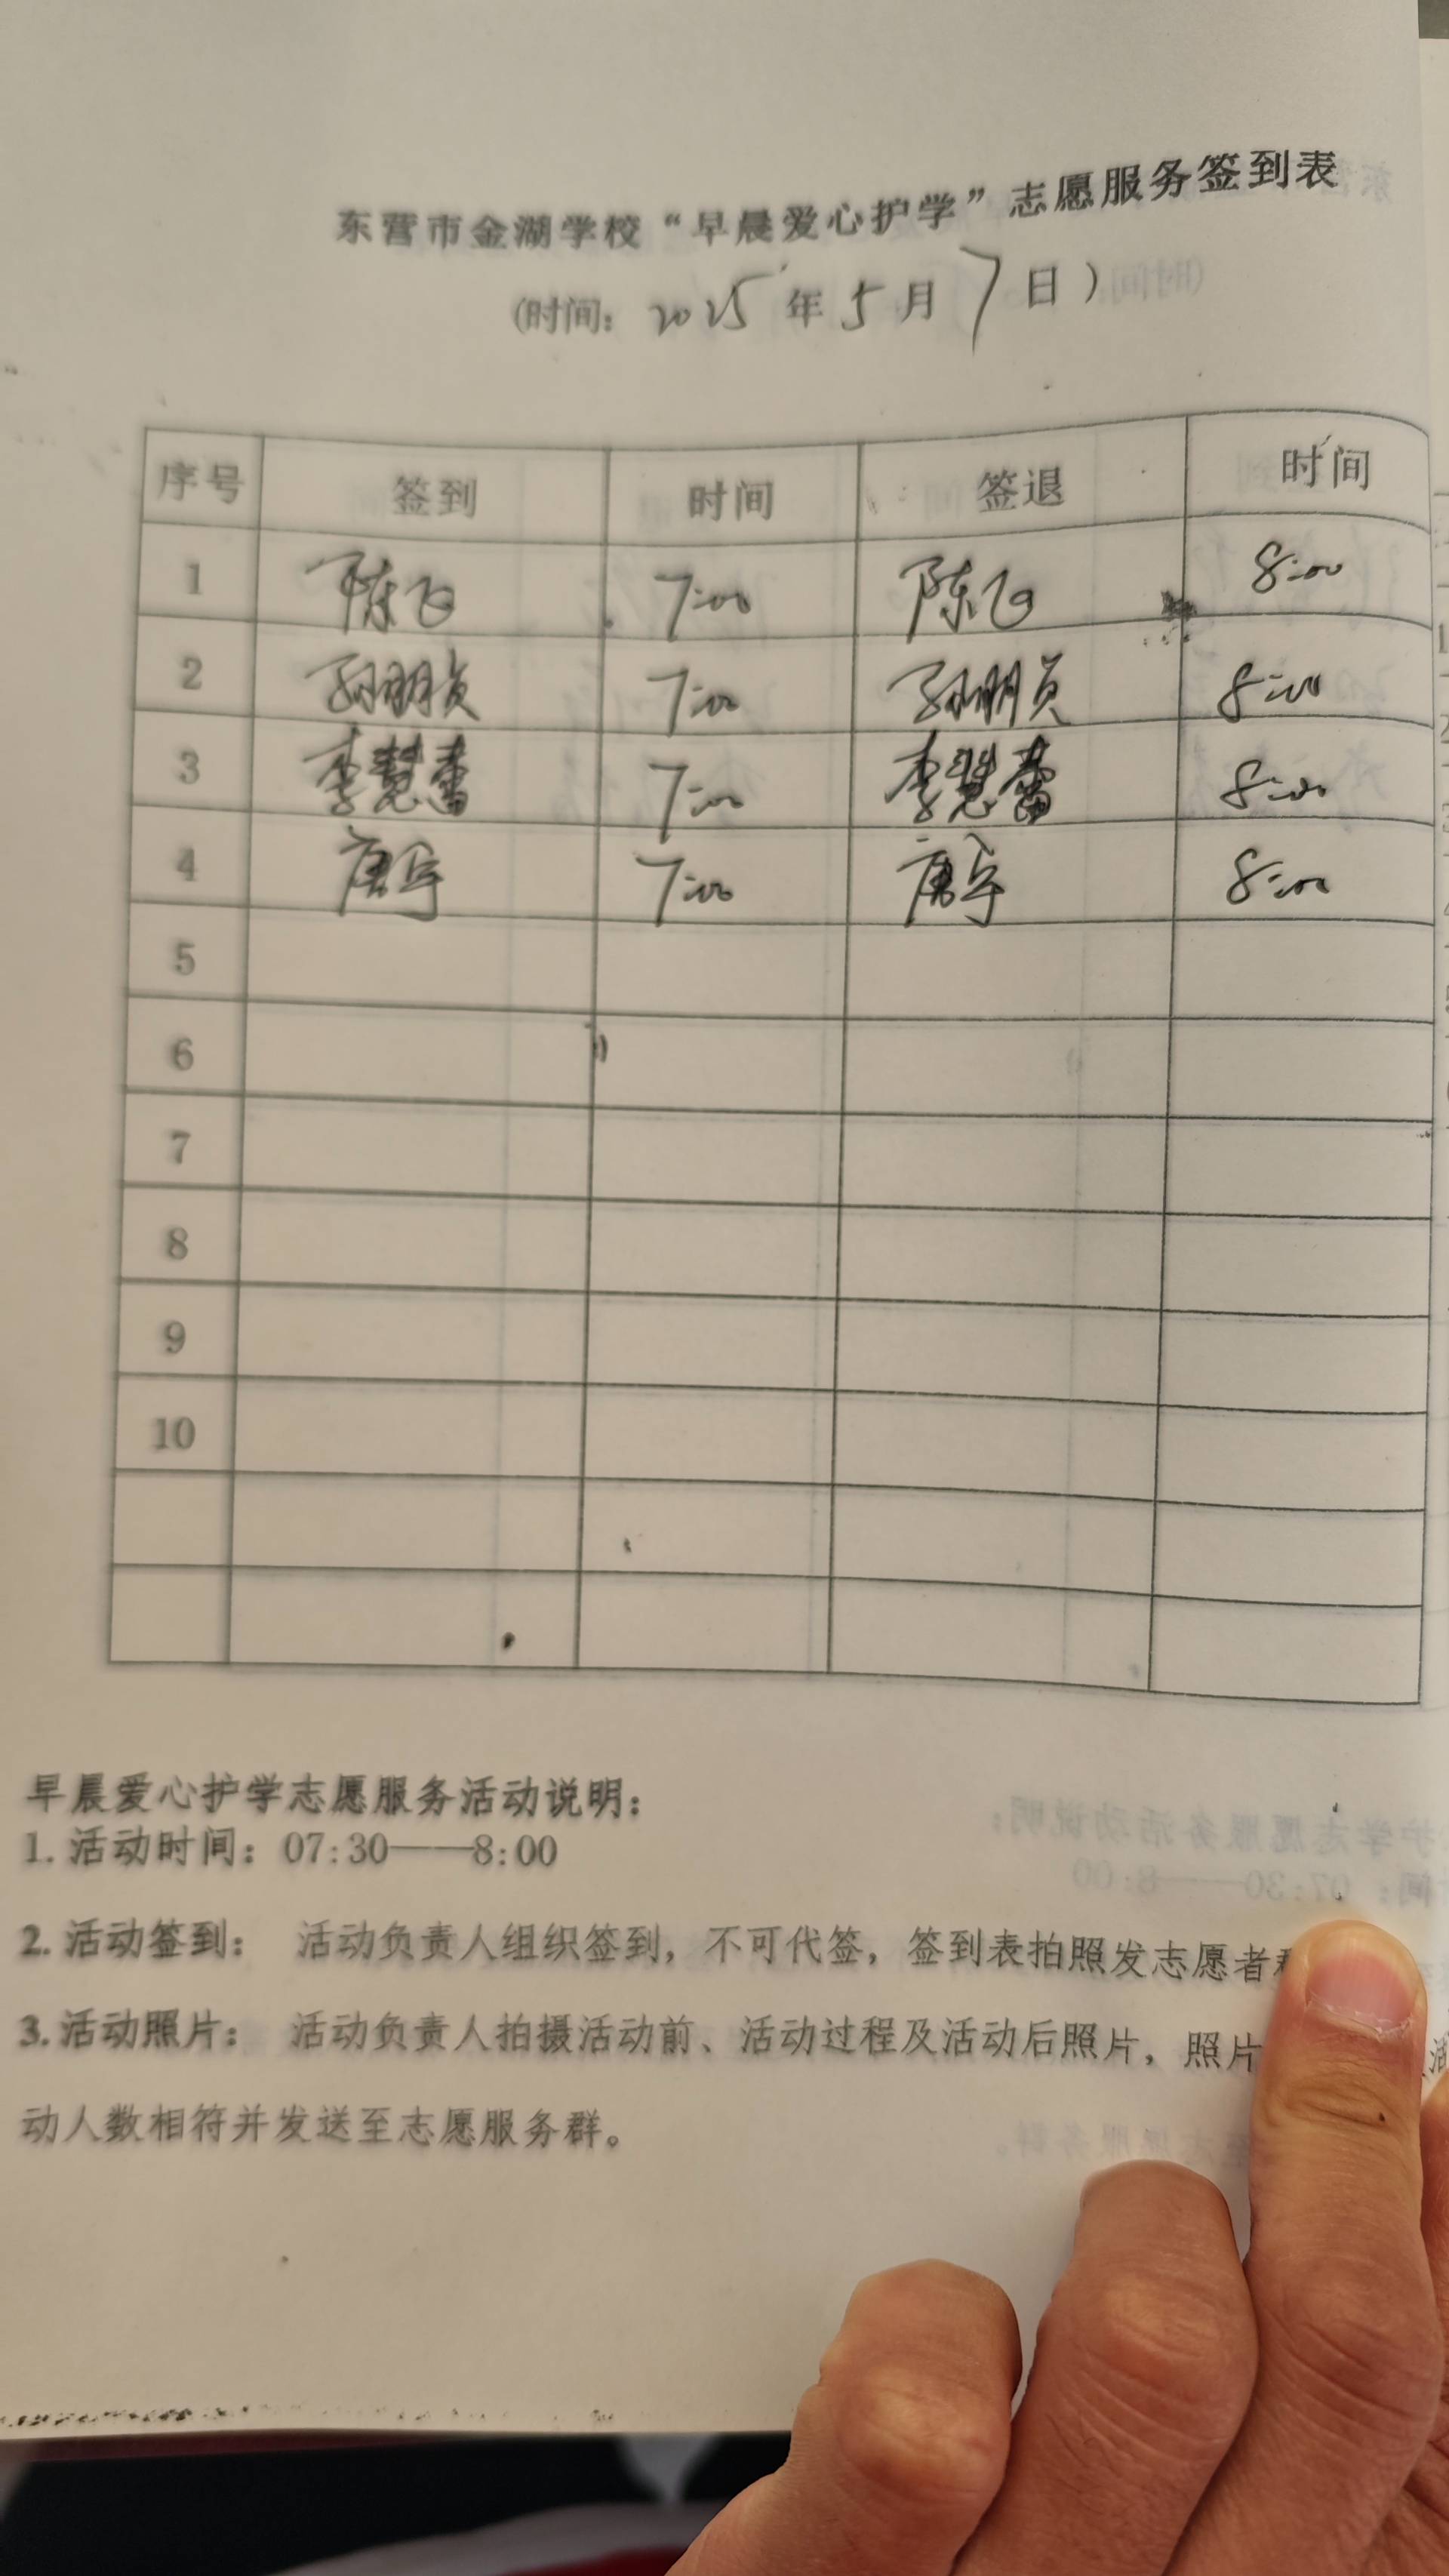 东营市金湖学校“早晨爱心护学”志愿服务签到表
(时间: 2025年5月7日)
序号 签到 时间 签退 时间
1 陈飞 7:00 陈飞 8:00
2 孙鹏贞 7:00 孙鹏贞 8:00
3 李慧蕾 7:00 李慧蕾 8:00
4 唐宇 7:00 唐宇 8:00
5
6
7
8
9
10
早晨爱心护学志愿服务活动说明:
1.活动时间: 07:30——8:00
2.活动签到: 活动负责人组织签到, 不可代签, 签到表拍照发志愿者
3.活动照片: 活动负责人拍摄活动前、活动过程及活动后照片, 照片
动人数相符并发送至志愿服务群。